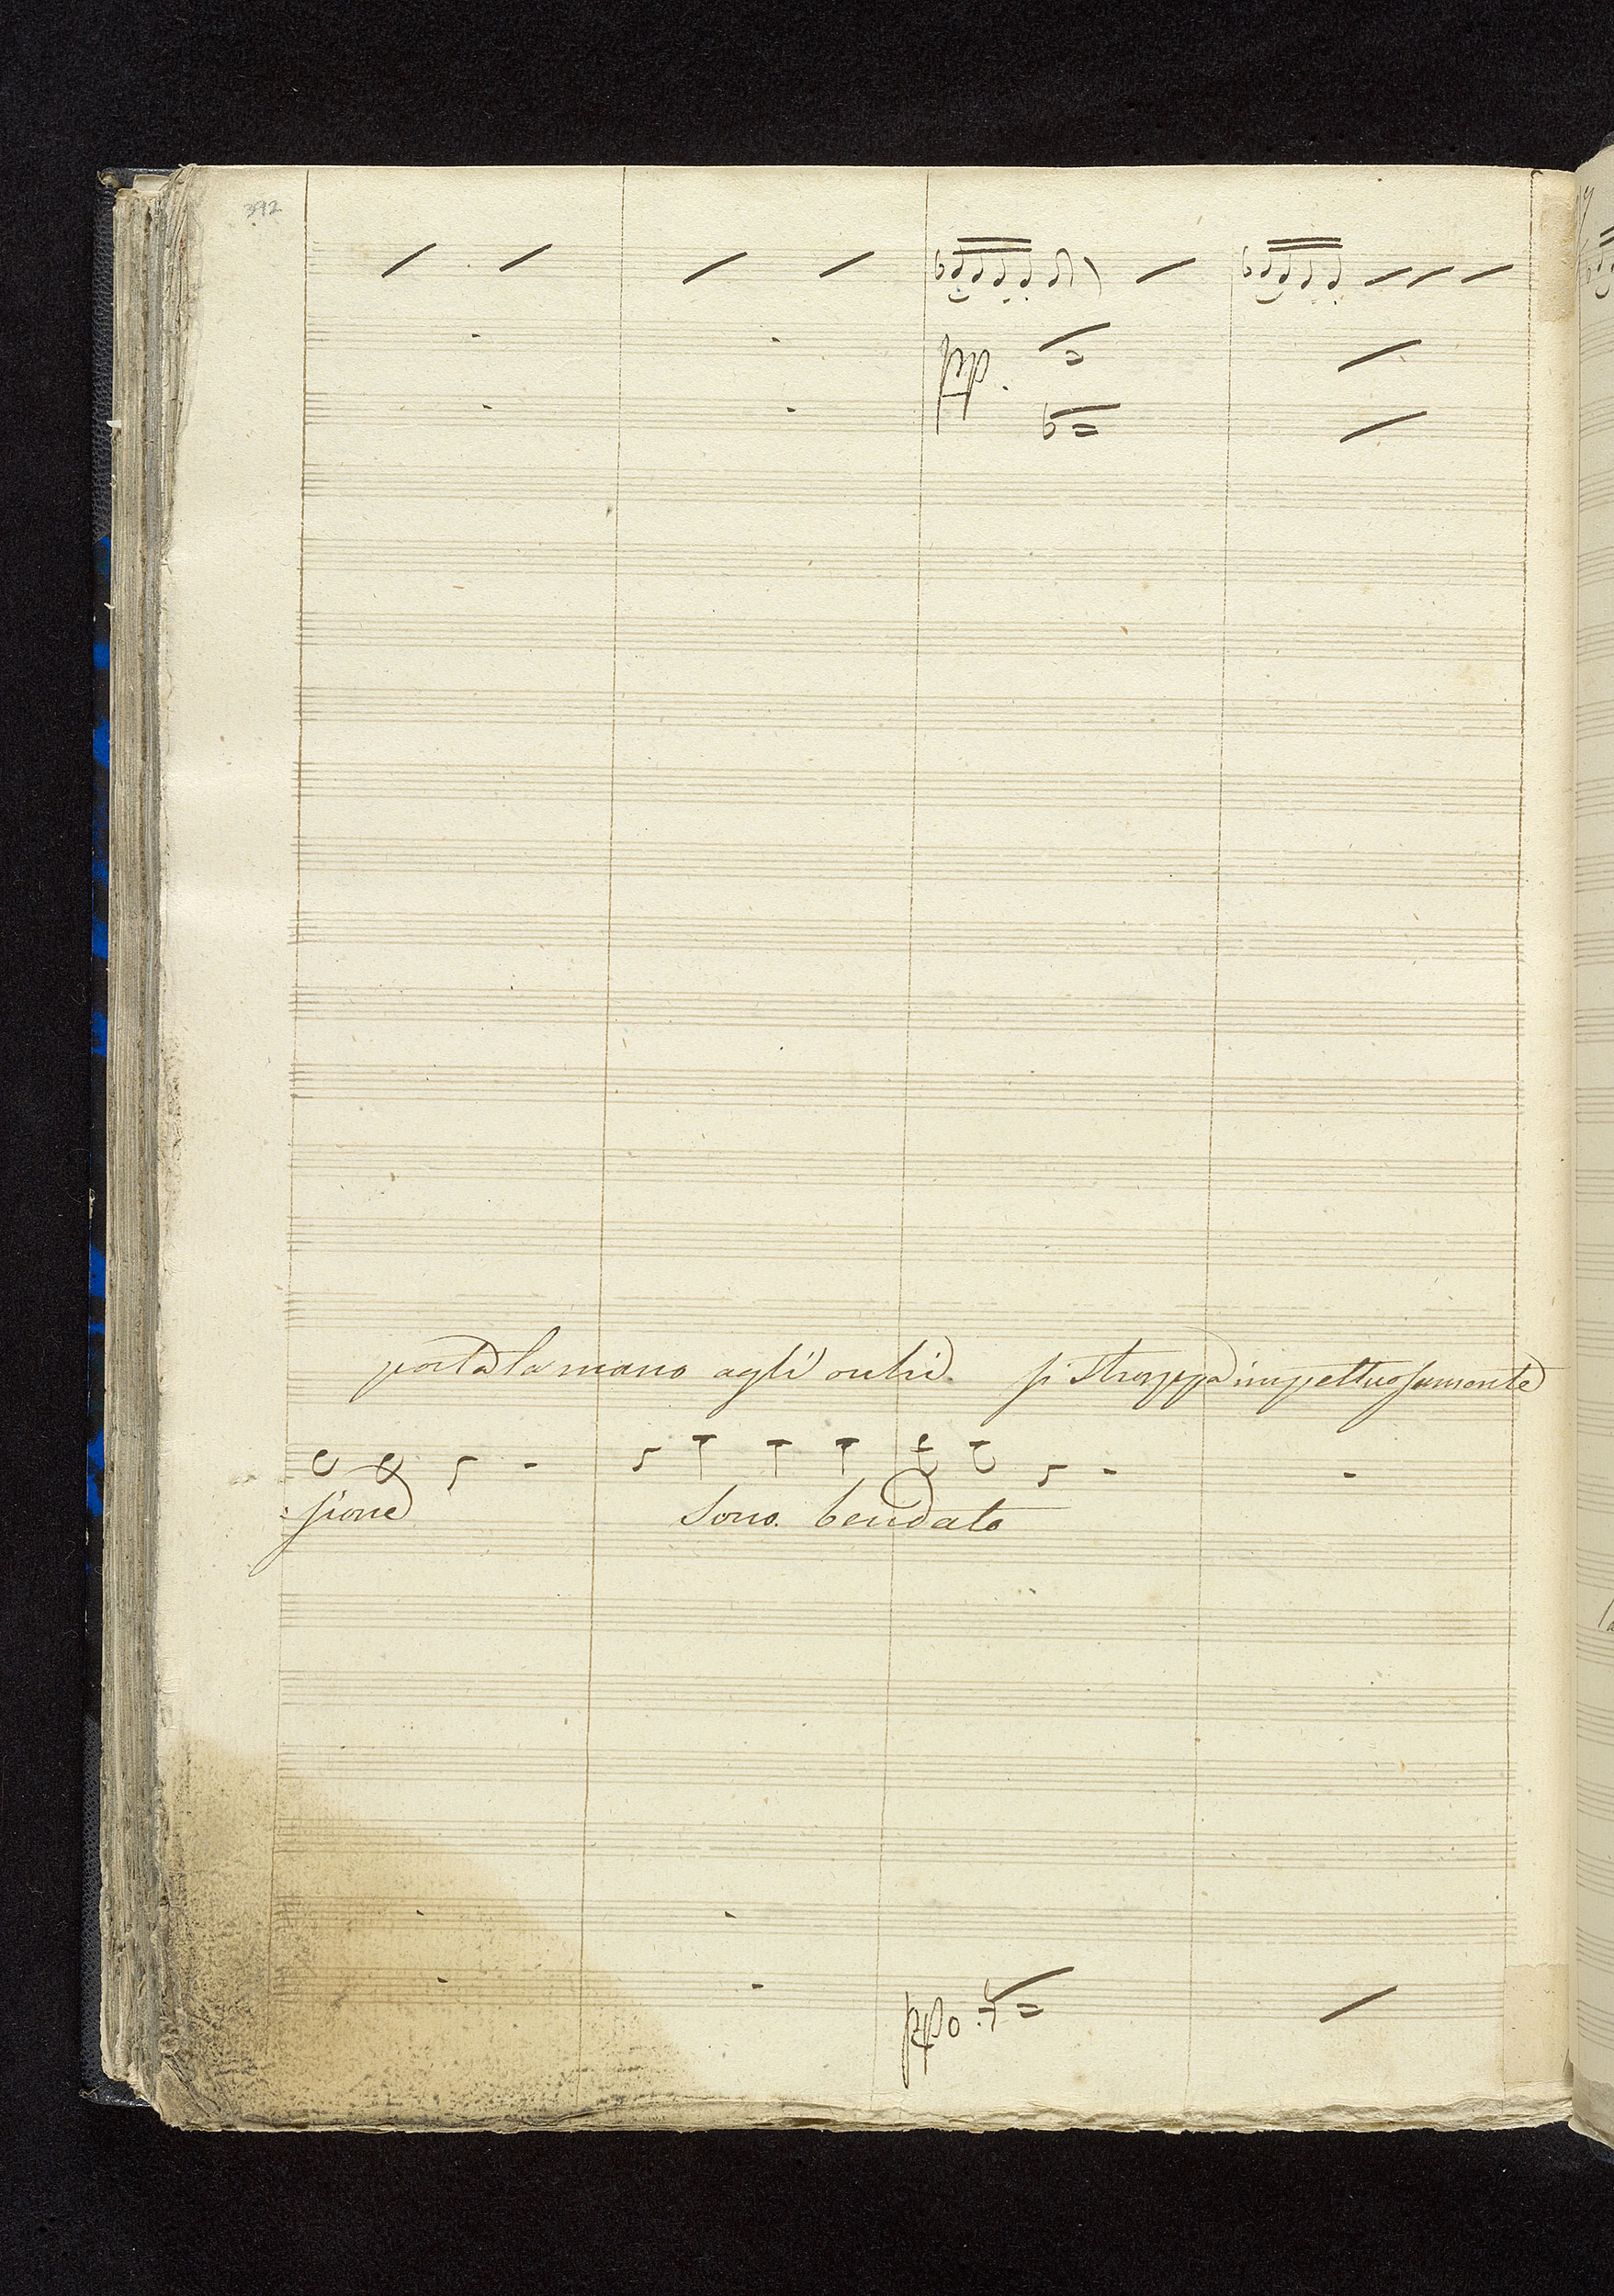 392
porta la mano agli occhi. si strappa impettuosamente
:sione Sono. bendato
ppo